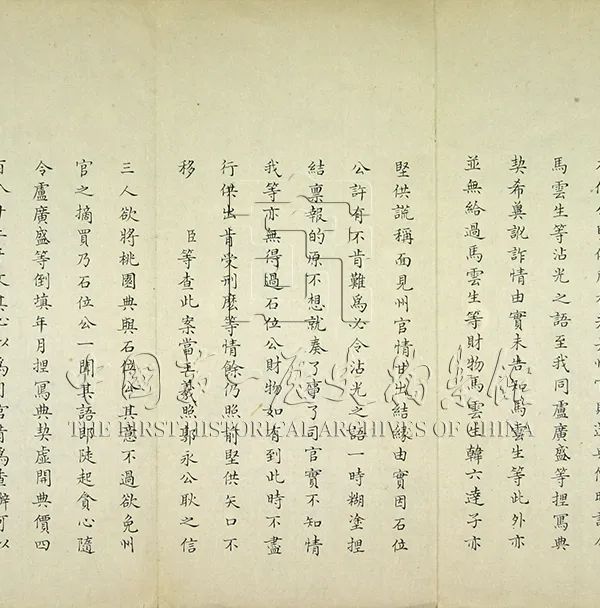 馬雲生等沾光之語至我同盧廣盛等捏寫典
契希冀訛詐情由實未告知馬雲生等此外亦
並無給過馬雲生等財物馬雲生韓六達子亦
堅供謊稱面見州官情甘出結緣由實因石位
公許有不肯難爲必令沾光之語一時糊塗捏
結稟報的原不想就奏了事了司官實不知情
我等亦無得過石位公財物如有到此時不盡
行供出肯受刑麽等情餘仍照前堅供矢口不
移 臣等查此案當王義照郭永公耿之信
三人欲將桃園典與石位公其意不過欲免州
官之摘買乃石位公一聞其語即陡起貪心隨
令盧廣盛等倒填年月捏寫典契虛開典價四
中國第一歷史檔案館
THE FIRST HISTORICAL ARCHIVES OF CHINA